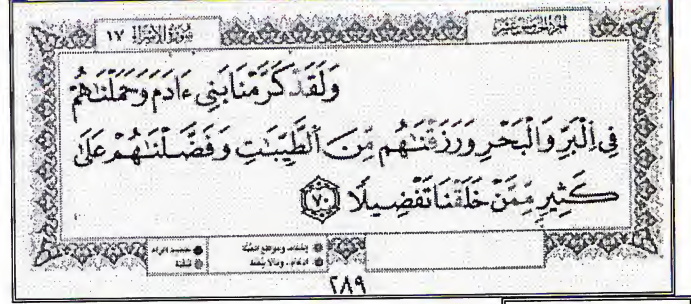 سُورَةُ الإِسْرَاءِ ١٧
الجُزءُ الخَامِسَ عَشَر
وَلَقَدْ كَرَّمْنَا بَنِىٓ ءَادَمَ وَحَمَلْنَٰهُمْ
فِى ٱلْبَرِّ وَٱلْبَحْرِ وَرَزَقْنَٰهُم مِّنَ ٱلطَّيِّبَٰتِ وَفَضَّلْنَٰهُمْ عَلَىٰ
كَثِيرٍ مِّمَّنْ خَلَقْنَا تَفْضِيلًا ٧٠
٢٨٩